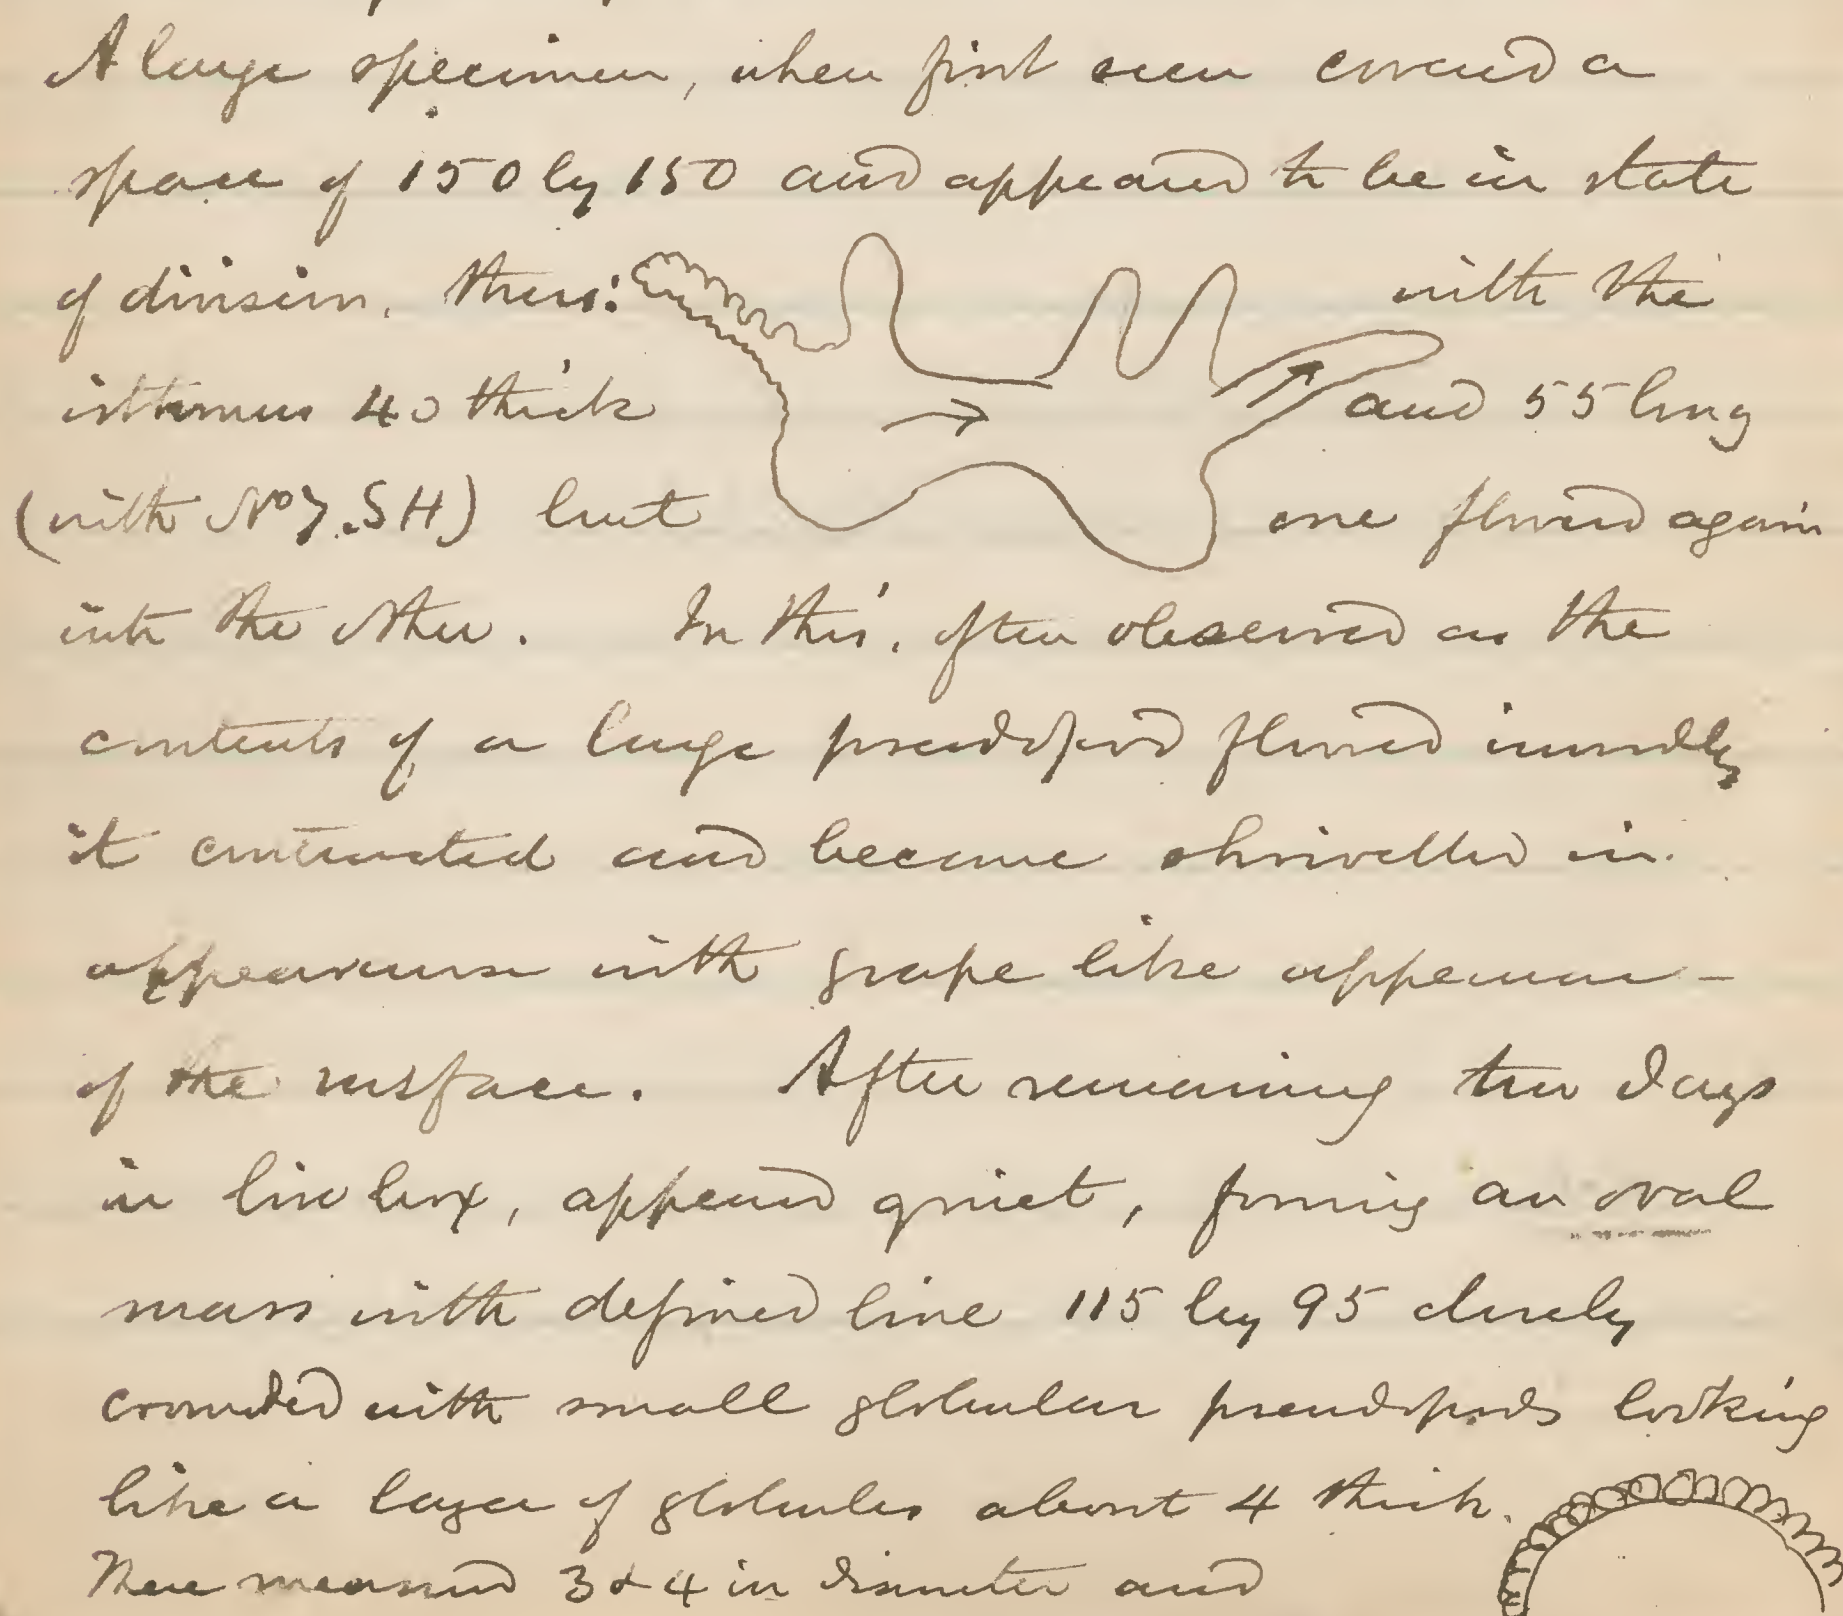 A large specimen, when first seen covered a
space of 150 by 150 and appeared to be in state
of division. thus: with the
isthmus 40 thick and 55 long
(with No 7. SH) but one flowed again
into the other. In this, often observed as the
contents of a large pseudopod flowed inwardly
it contracted and became shrivelled in
appearance with grape like appearance
of the surface. After remaining two days
in live box, appeared quiet, forming an oval
mass with defined line 115 by 95 closely
crowded with small globular pseudopods looking
like a layer of globules about 4 thick.
These measured 3 & 4 in diameter and